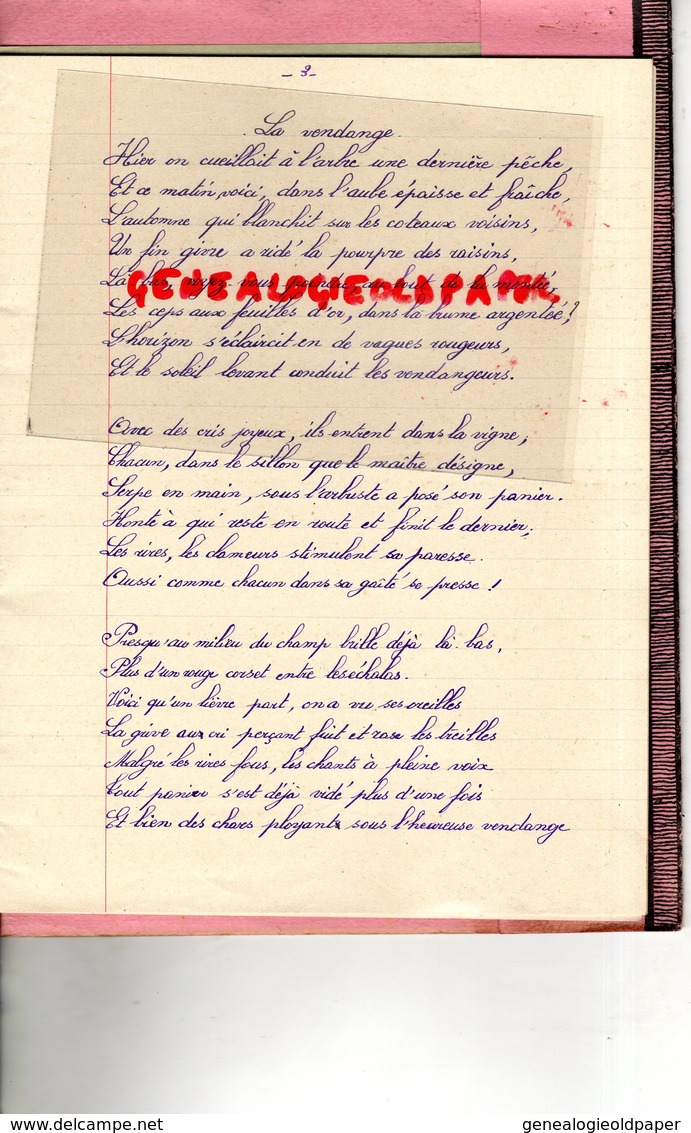 - 3 -
La vendange.
Hier on cueillait à l'arbre une dernière pêche,
Et ce matin, voici, dans l'aube épaisse et fraîche,
L'automne qui blanchit sur les coteaux voisins,
Un fin givre a ridé la pourpre des raisins,
Là-bas, voyez-vous poindre, au bout de la montée,
GENEALOGIEOLDPAPER
Les ceps aux feuilles d'or, dans la brume argentée?
L'horizon s'éclaircit en de vagues rougeurs,
Et le soleil levant conduit les vendangeurs.
Avec des cris joyeux, ils entrent dans la vigne;
Chacun, dans le sillon que le maître désigne,
Serpe en main, sous l'arbuste a posé son panier.
Honte à qui reste en route et finit le dernier;
Les rires, les clameurs stimulent sa paresse.
Aussi comme chacun dans sa gaîté se presse!
Presqu'au milieu du champ brille déjà là-bas,
Plus d'un rouge corset entre les échalas.
Voici qu'un lièvre part, on a vu ses oreilles
La grive au cri perçant fuit et rase les treilles
Malgré les rires fous, les chants à pleine voix
Tout panier s'est déjà vidé plus d'une fois
Et bien des chars ployant sous l'heureuse vendange
delcampe.net
genealogieoldpaper